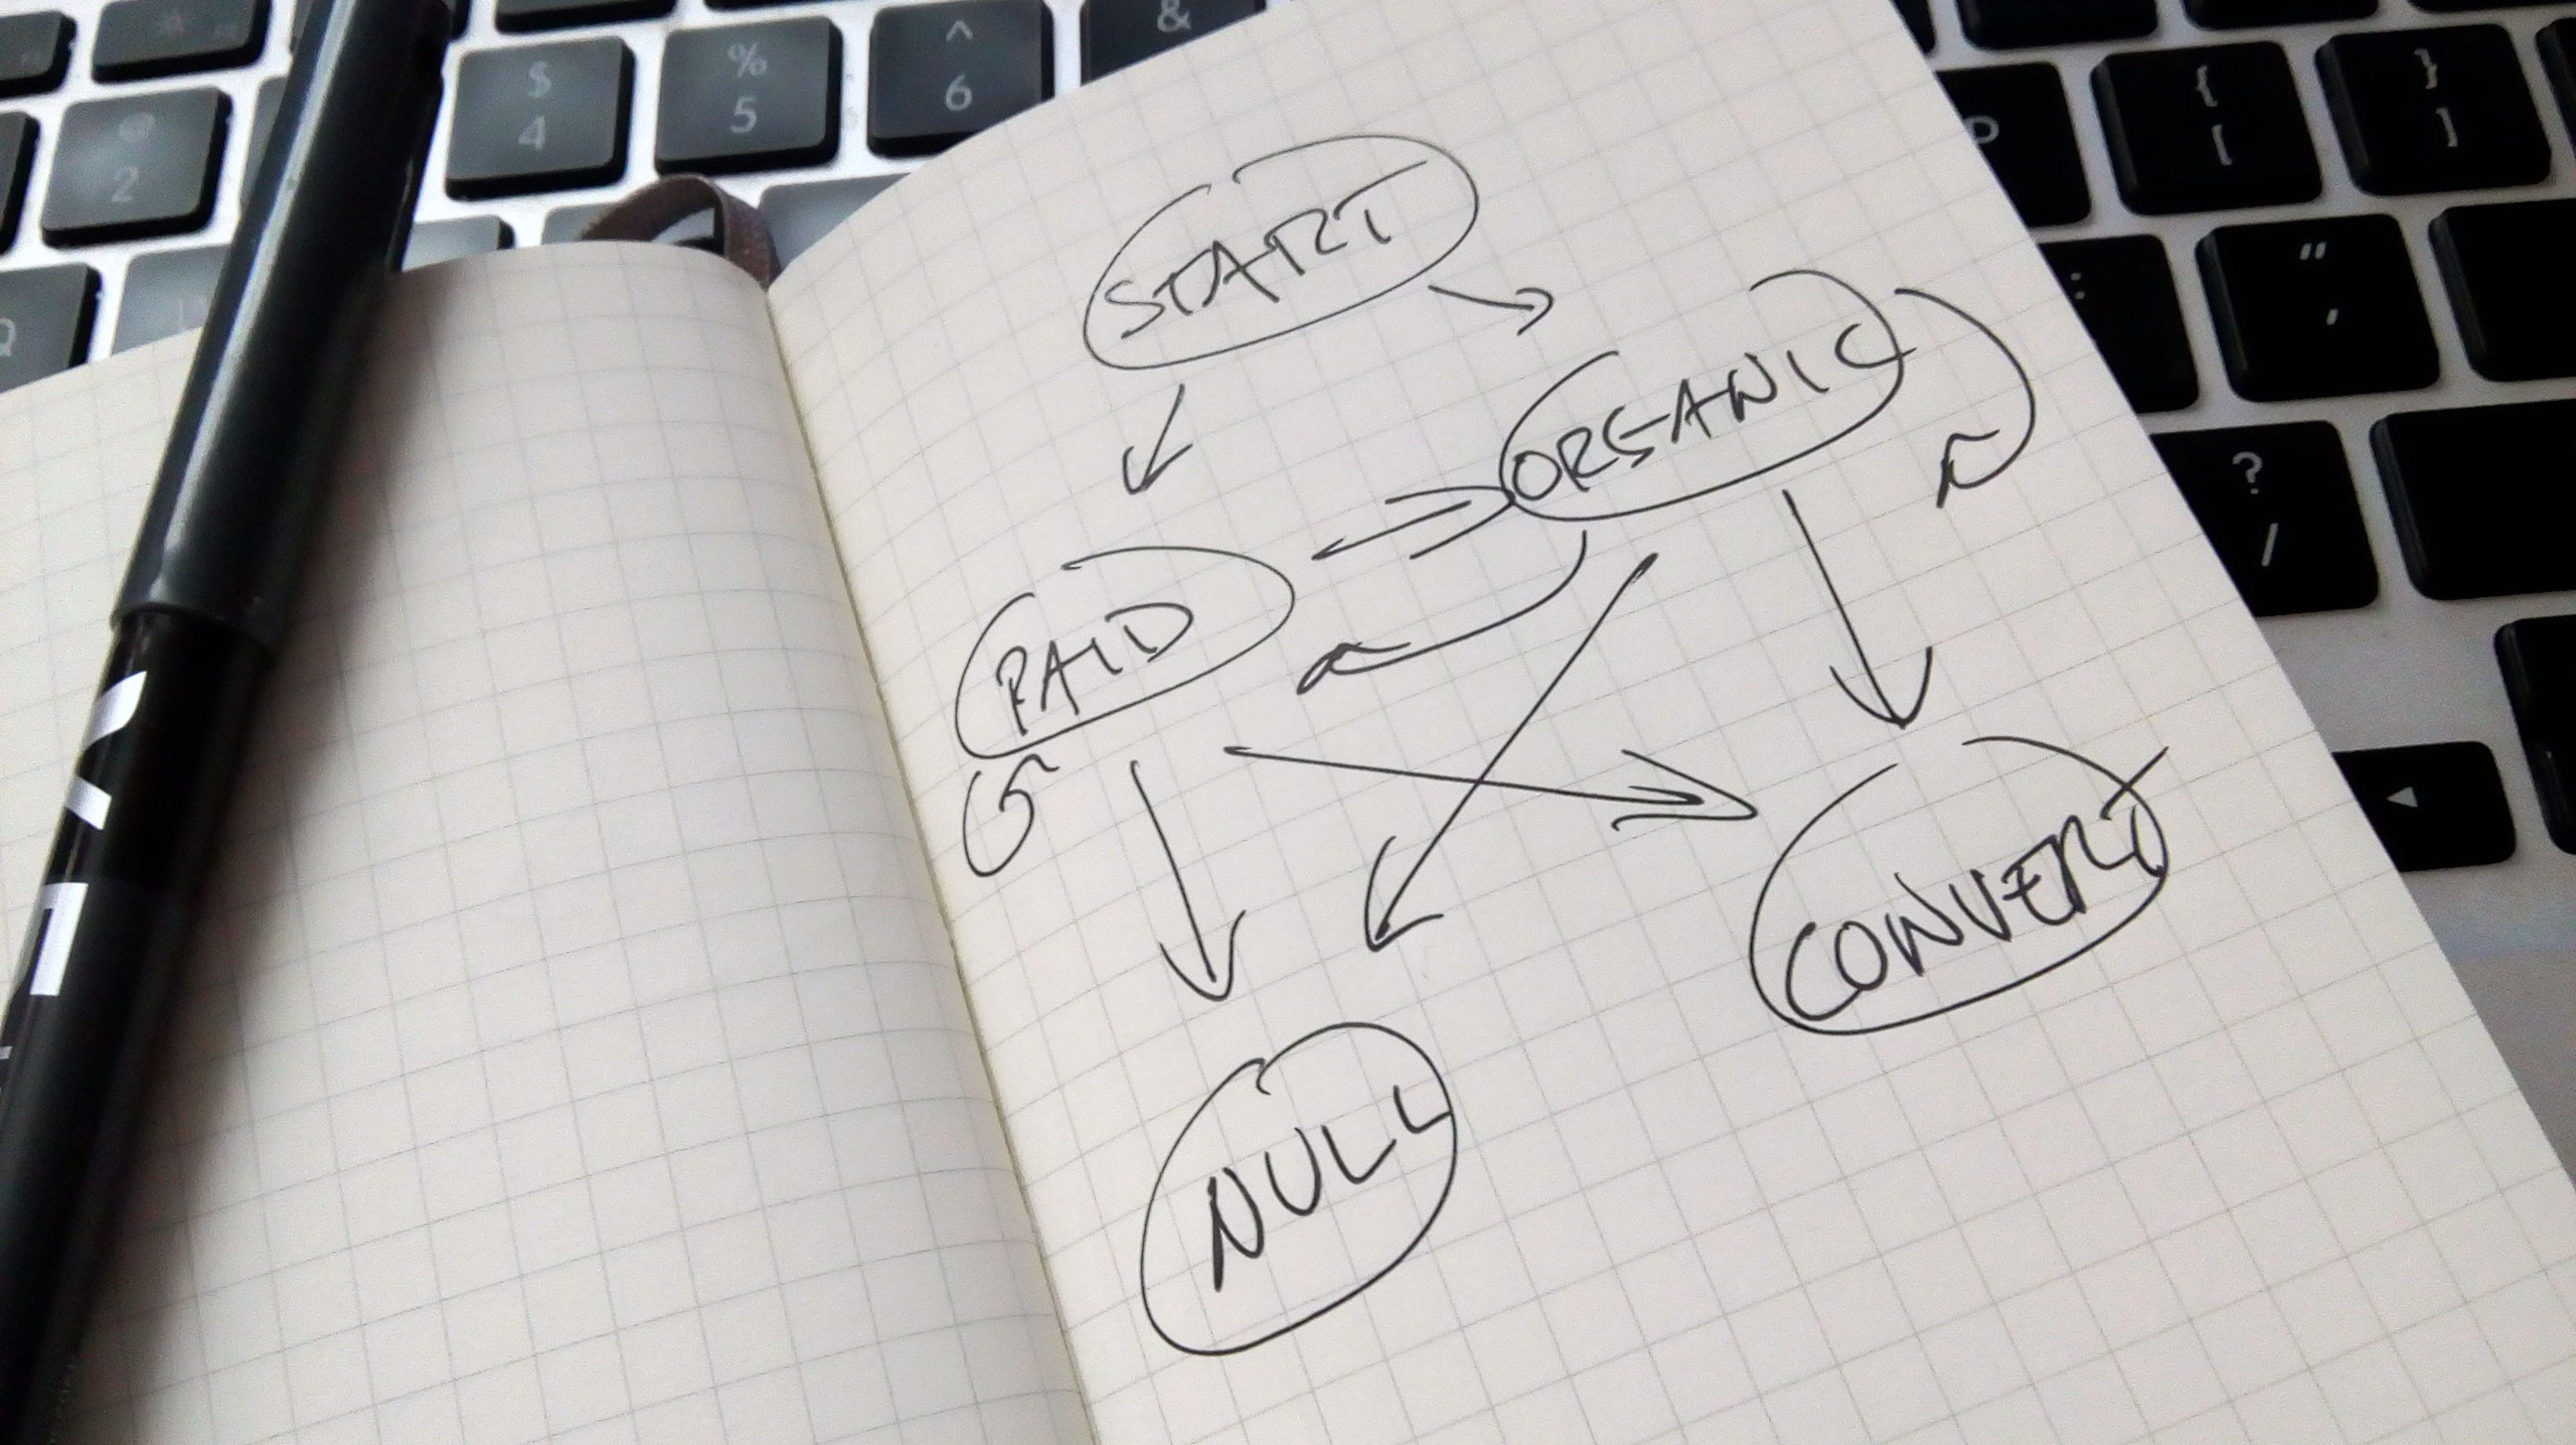 &
$
4
%
5
^
6
@
2
P
{
[
}
]
Q
:
"
,
?
/
START
ORGANIC
PAID
CONVERT
NULL